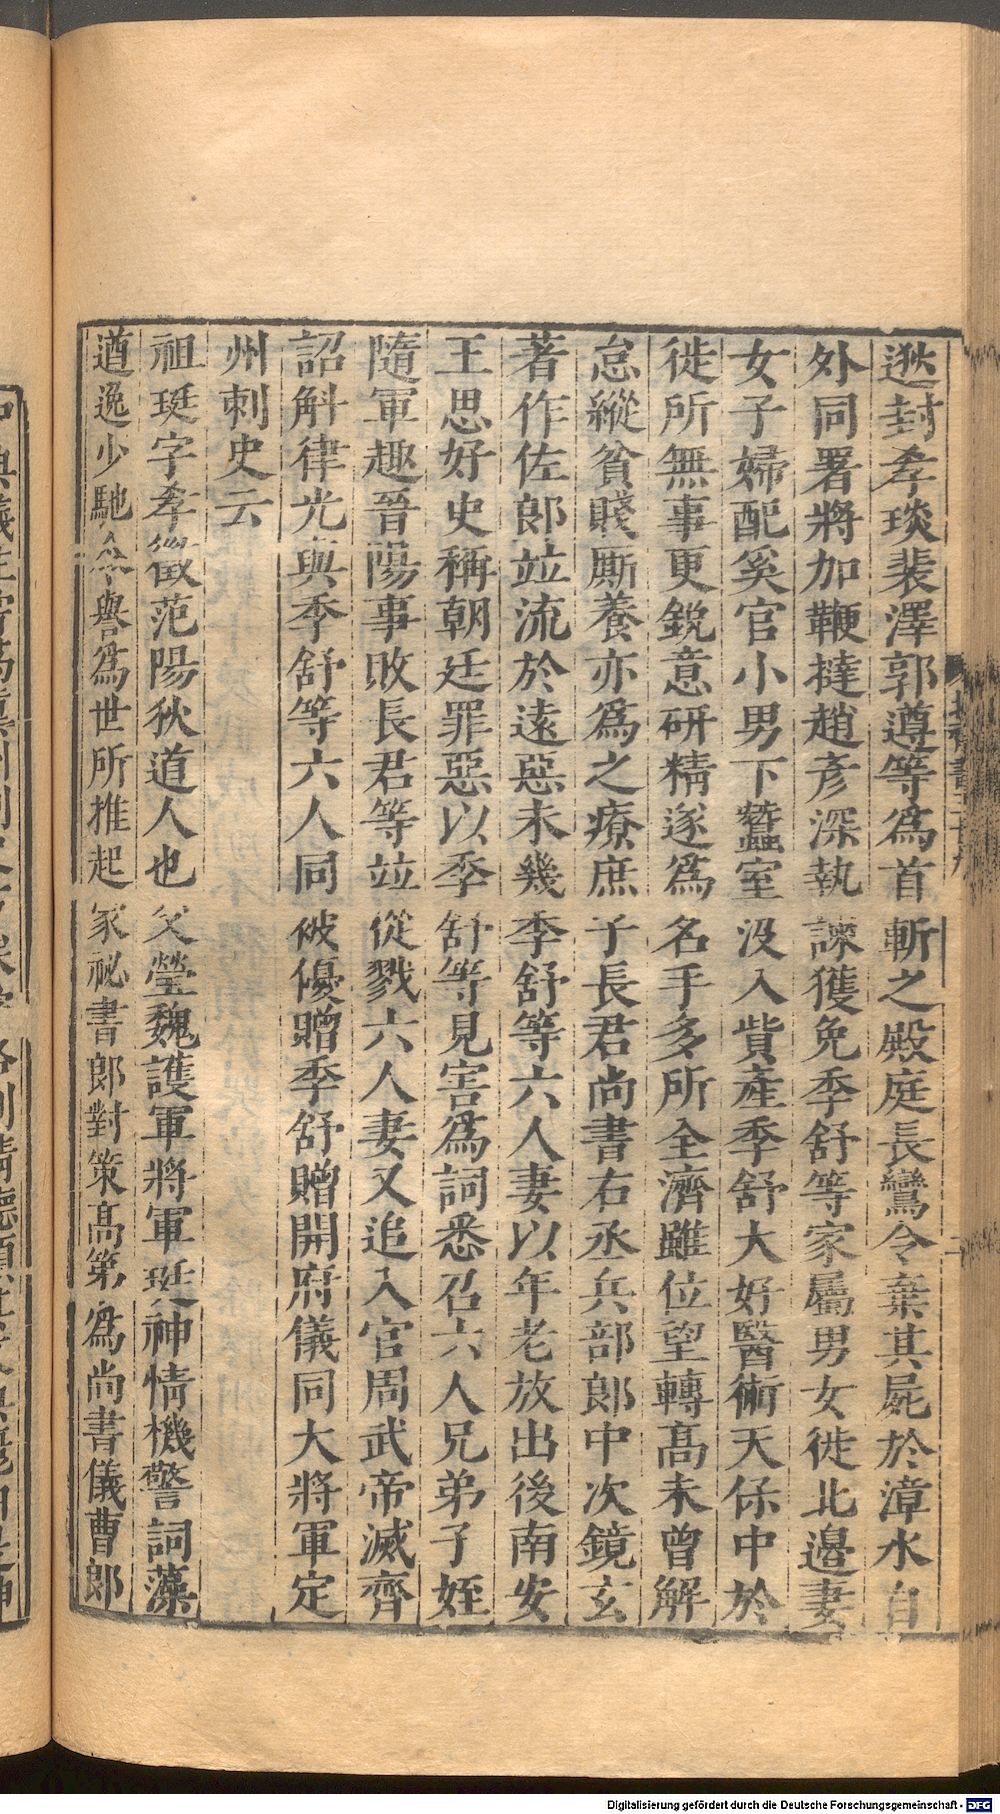 逖封孝琰裴澤郭遵等爲首斬之殿庭長鸞令棄其屍於漳水自
外同署將加鞭撻趙彦深執諫獲免季舒等家屬男女徙北邉妻
女子婦配奚官小男下蠶室没入貲産季舒大好醫術天保中於
徙所無事更鋭意研精遂爲名手多所全濟雖位望轉髙未曾解
怠縱貧賤厮養亦爲之療庶子長君尚書右丞兵部郎中次鏡玄
著作佐郎竝流於逺惡未幾季舒等六人妻以年老放出後南安
王思好史稱朝廷罪惡以季舒等見害爲詞悉召六人兄弟子姪
隨軍趣晉陽事敗長君等竝從戮六人妻又追入官周武帝滅齊
詔斛律光與季舒等六人同被優贈季舒贈開府儀同大將軍定
州刺史云
祖珽字孝徵范陽狄道人也父瑩魏護軍將軍珽神情機警詞藻
遒逸少馳令譽爲世所推起家祕書郎對策髙第爲尚書儀曹郎
Digitalisierung gefördert durch die Deutsche Forschungsgemeinschaft - DFG